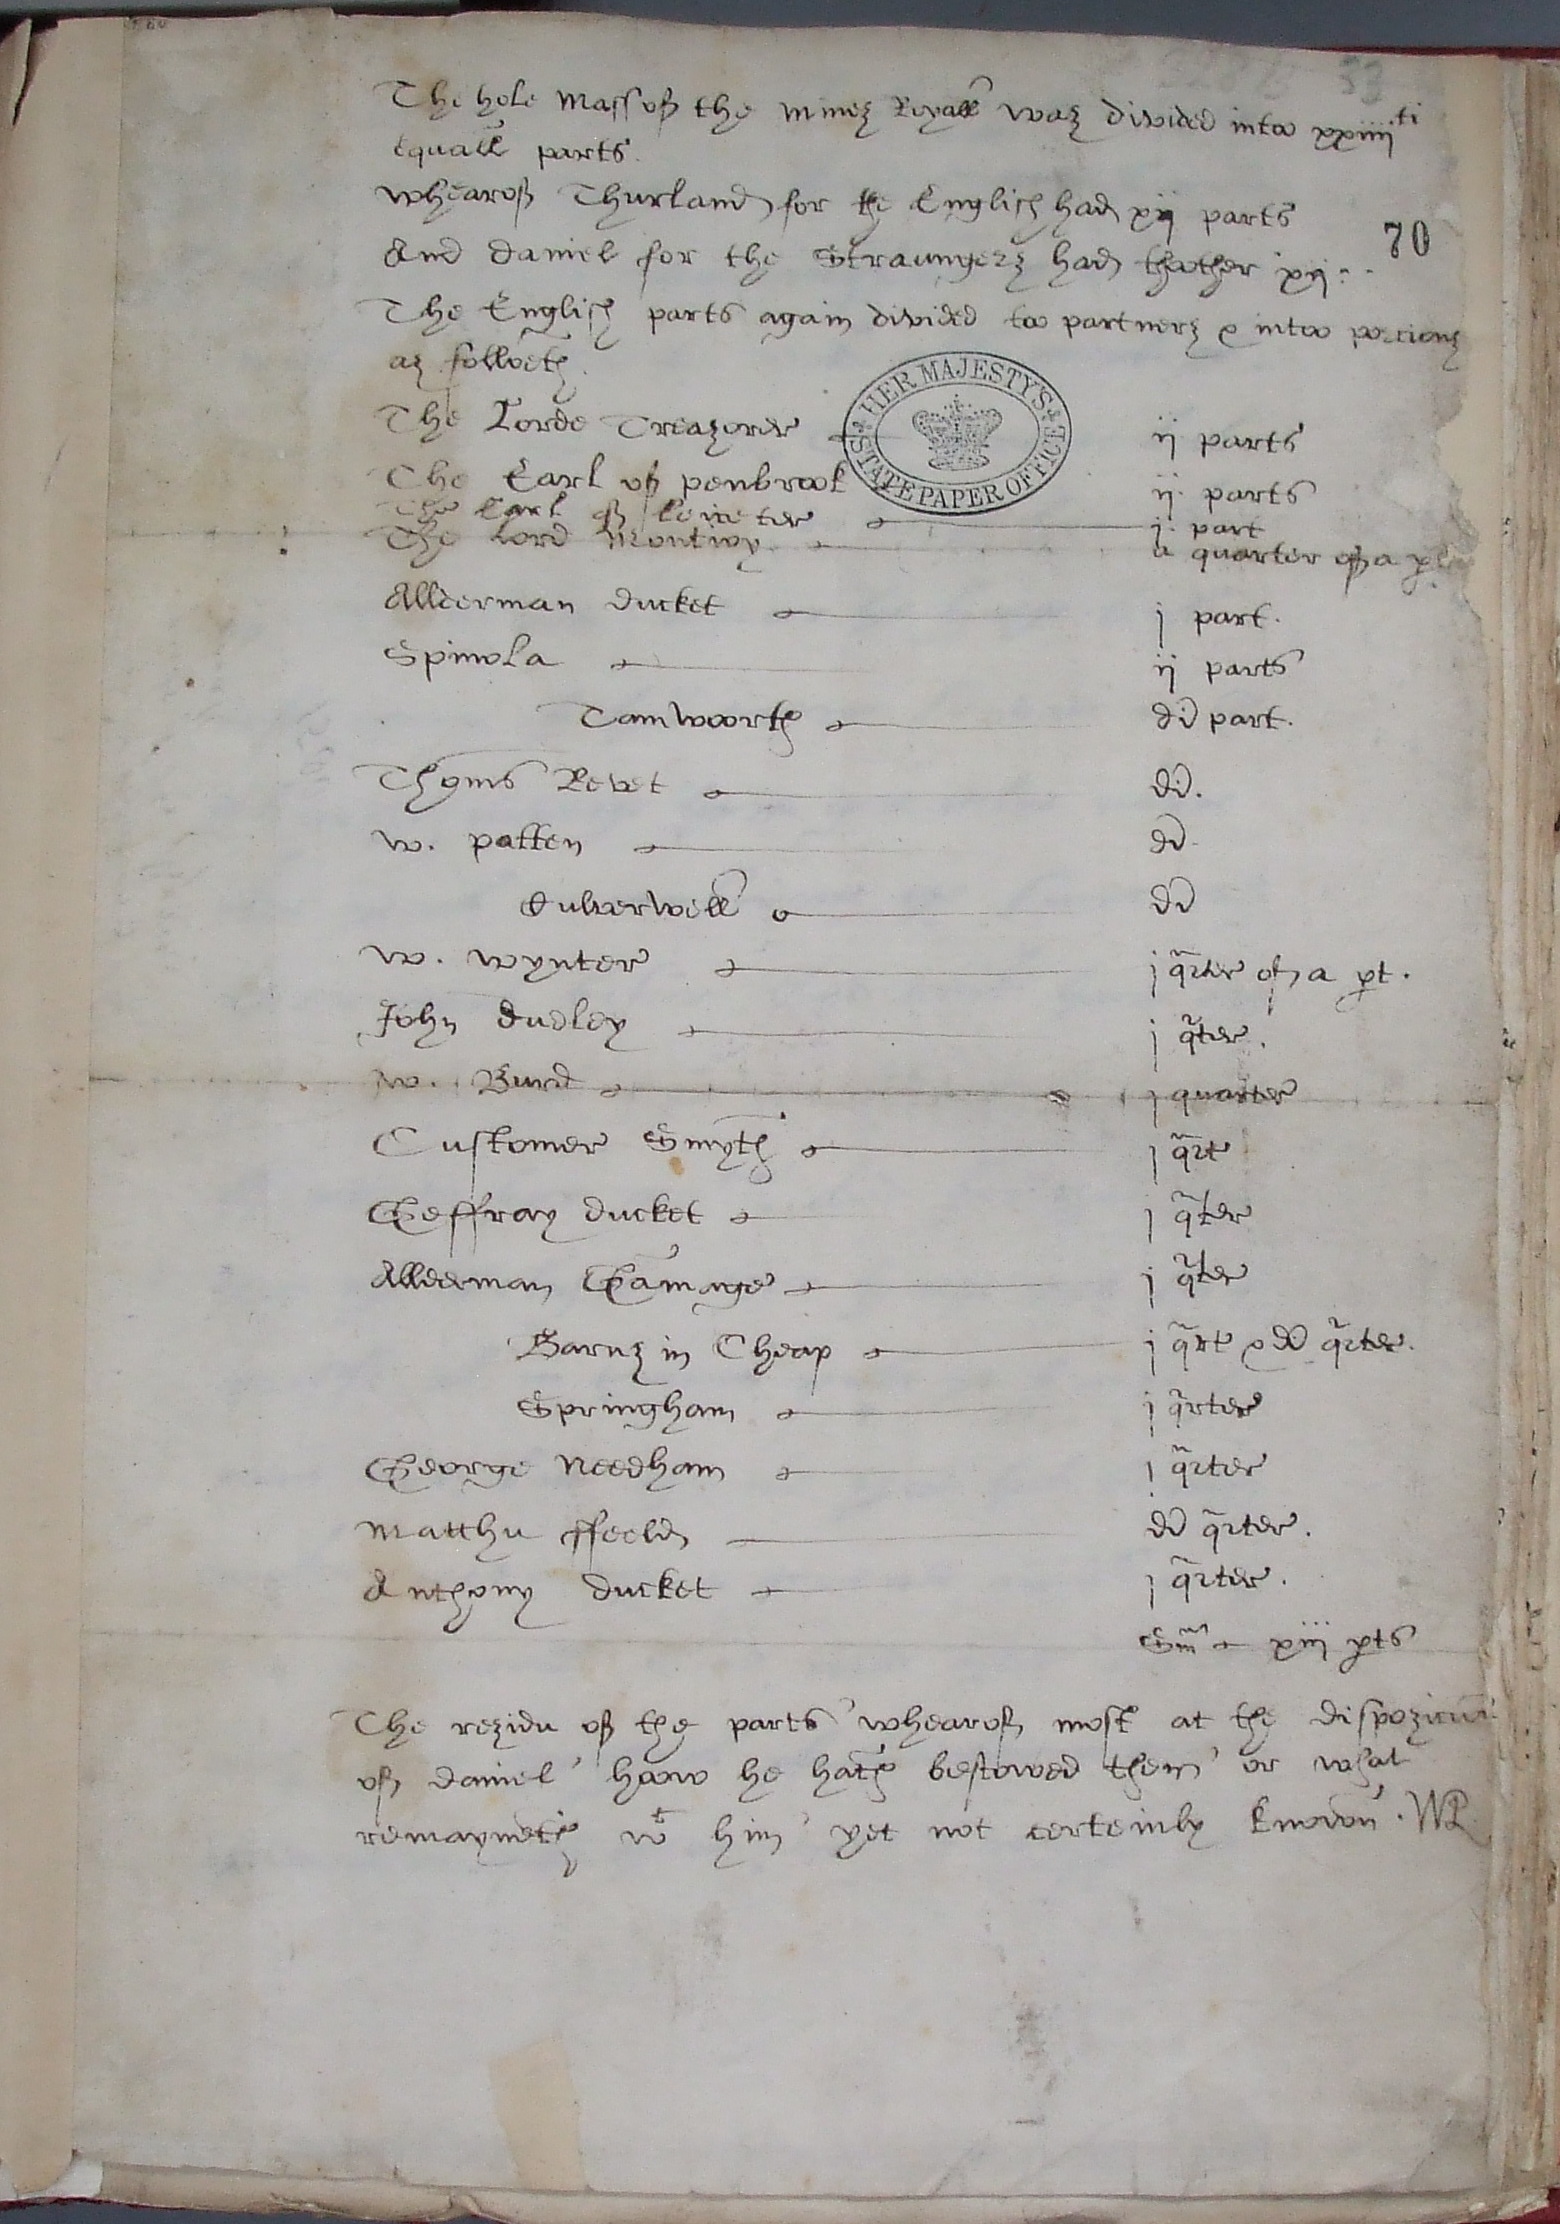 53
The hole Mass of the minez Royall waz divided intoo xxiiii^ti
Equall parts.
whearof Thurland for the English had xij parts
70
And Daniel for the Straungerz had thoother xij.
The English parts again divided too partnerz & intoo porcionz
az folloeth.
HER MAJESTY'S STATE PAPER OFFICE
The Lorde Treazorer ij parts
The Earl of penbrook ij. parts
The Earl of leiceter j. part
The Lord Montioy a quarter of a
Allderman Ducket j part.
Spinola ij parts
Tamwoorth di part.
Thoms Revet di.
w. patten di.
Culverwell di
w. wynter j qrter of a pt.
John Dudley j qter.
w. Burd j quarter
Customer Smyth j qrt
Geffray Ducket j qter
Allderman Gamage j qter
Barnz in Cheap j qrt & di qrter.
Springham j qrter
George Needham j qrter
Matthu ffeeld di qrter.
Anthony Ducket j qrter.
Sm^a xiij pts
The rezidu of the parts whearof most at the dispozicion
of Daniel hoow he hath bestowed them or what
remayneth w^t him yet not certeinly known. WP